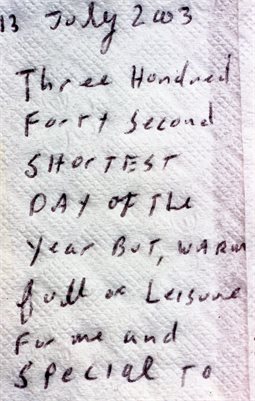 13 July 2003
Three Hondred
Forty Second
SHorTEST
DAY OF The
Year BUT, WARM
full or Leisure
For me and
Special To